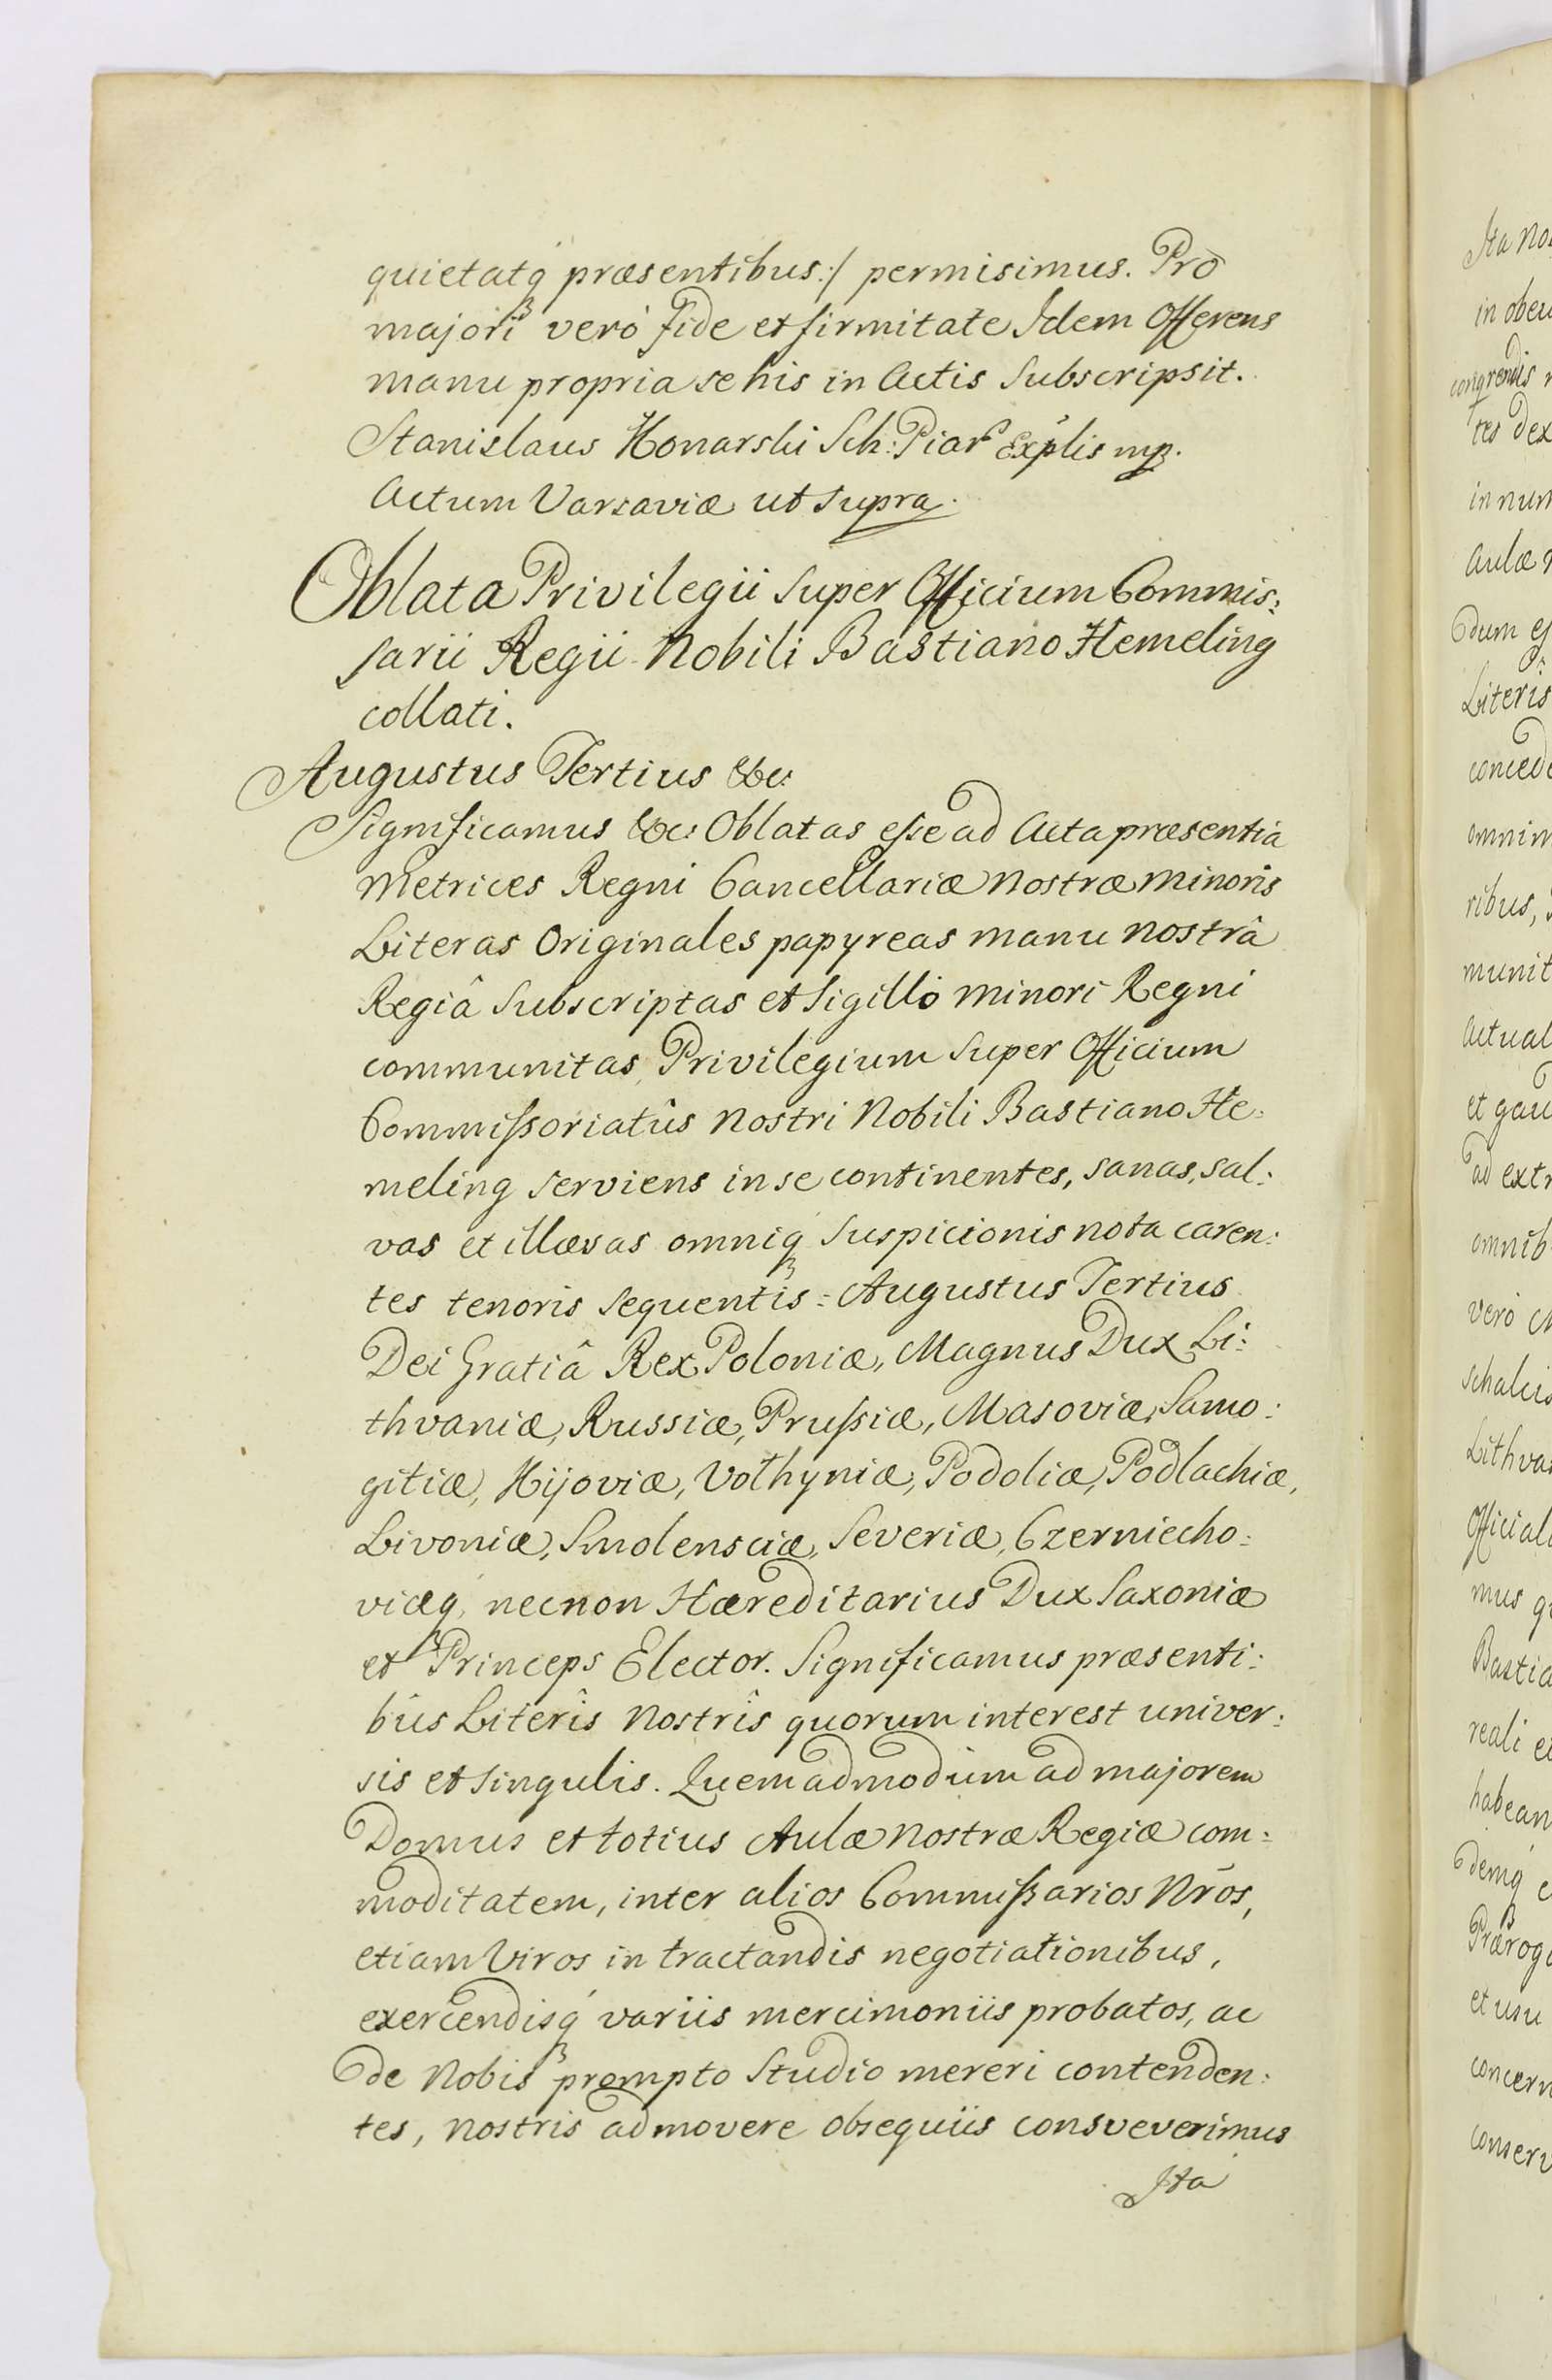 quietatq́ præsentibus:/ permisimus. Pro
majori verò fide et firmitate Idem Offerens
manu propria se his in Actis Subscripsit.
Stanislaus Konarski Sch: Piar Explis mp.
Actum Varsaviæ ut supra.
Oblata Privilegii Super Officium Commis:
sarii Regii Nobili Bastiano Hemeling
collati.
Augustus Tertius &c:
Significamus &c: Oblatas esse ad Acta præsentia
Metrices Regni Cancellariæ Nostræ Minoris
Literas Originales papyreas manu Nostrâ
Regiâ Subscriptas et Sigillo minori Regni
communitas Privilegium Super Officium
Commissoriatûs Nostri Nobili Bastiano He:
meling serviens in se continentes, sanas, sal:
vas et illæsas omniq́ Suspicionis nota caren:
tes tenoris sequentis: Augustus Tertius
Dei Gratiâ Rex Poloniæ, Magnus Dux Li:
thvaniæ, Russiæ, Prussiæ, Masoviæ, Samo:
gitiæ, Kijoviæ, Volhyniæ, Podoliæ, Podlachiæ,
Livoniæ, Smolensciæ, Severiæ, Czerniecho:
viæq́, necnon Hæreditarius Dux Saxoniæ
et Princeps Elector. Significamus præsenti:
bûs Literîs Nostrîs quorum interest univer:
sis et singulis. Quemadmodum ad majorem
Domus et totius Aulæ Nostræ Regiæ com:
moditatem, inter alios Commissarios Nr̃os,
etiam Viros in tractandis negotiationibus,
exercendisq́ variis mercimoniis probatos, ac
de Nobis prompto Studio mereri contenden:
tes, nostris admovere obsequiis consveverimus
Ita
Ita
in
congrendis
tes
Aulæ
dum
Literis
ribus,
et
ad
verò
mus
reali
et usu